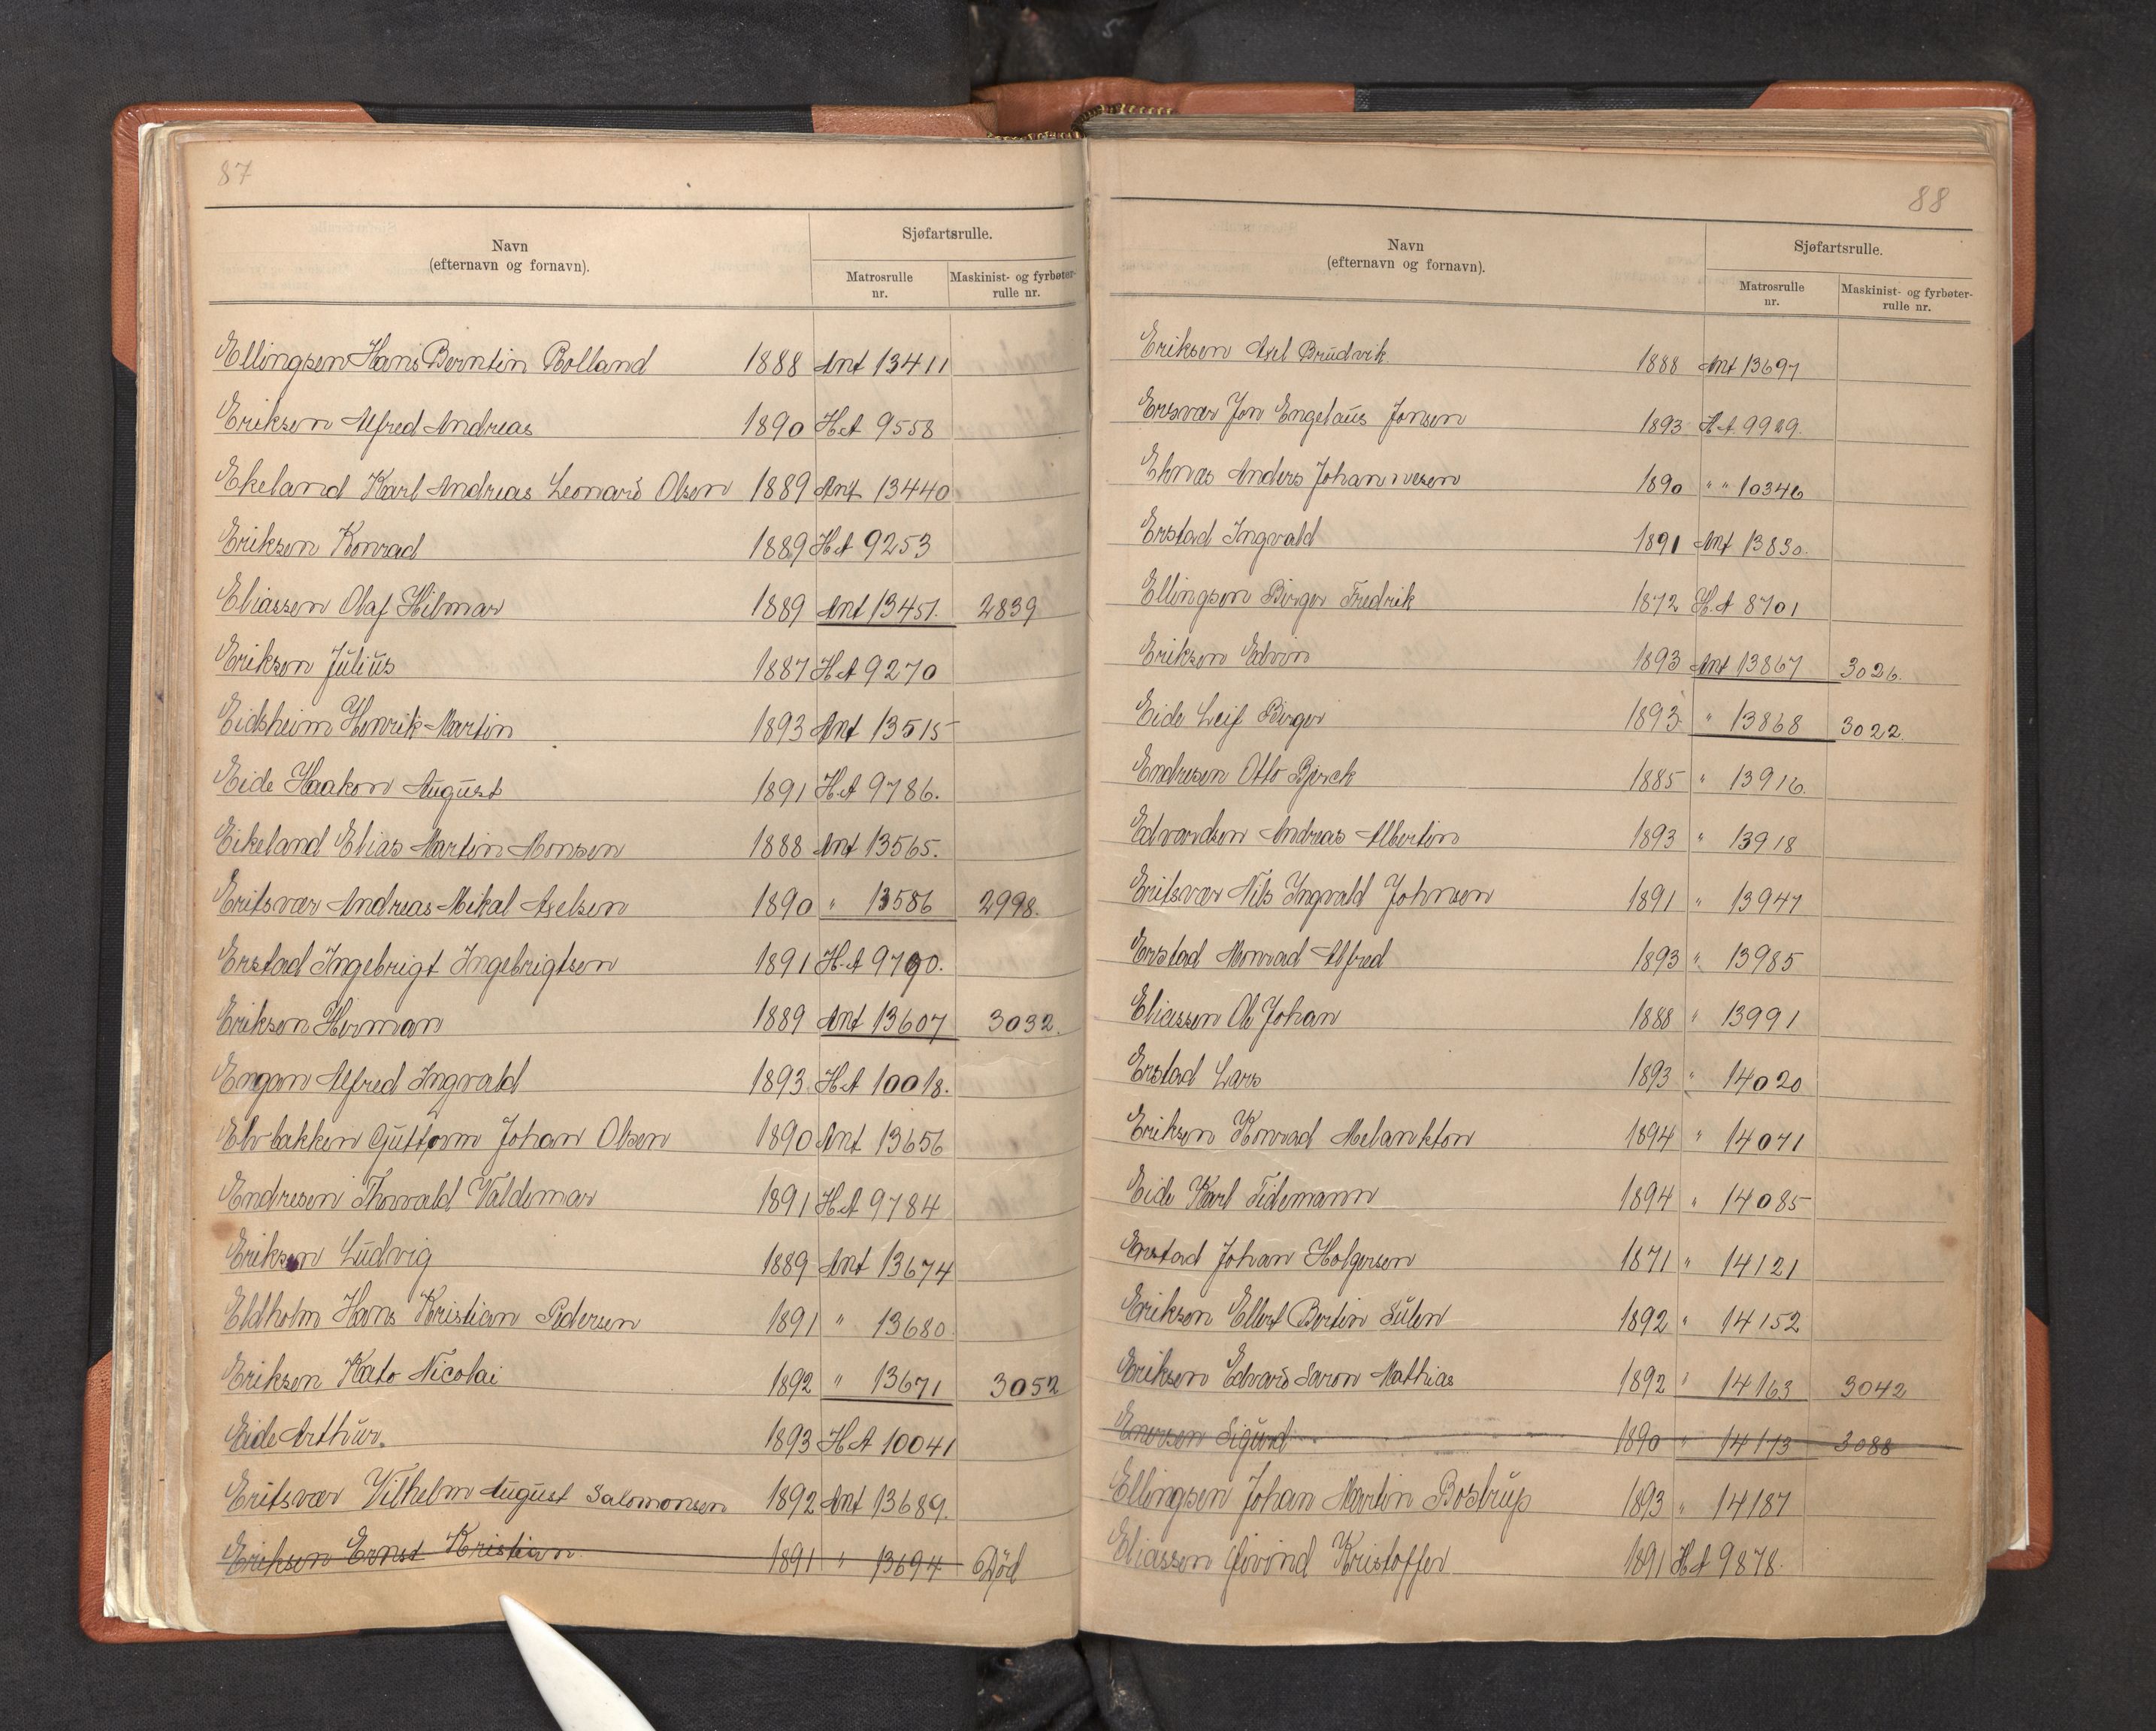 87
Navn
(efternavn og fornavn).
Sjøfartsrulle.
Matrosrulle
nr.
Maskinist- og fyrbøter-
rulle nr.
Ellingsen Hans Berntin Rolland 1888 Ant 13411
Eriksen Alfred Andreas 1890 HA 9558
Ekeland Karl Andreas Leonard Olsen 1889 Ant 13440
Eriksen Konrad 1889 HA 9253
Eliassen Olaf Hilmar 1889 Ant 13451. 2839
Eriksen Julius 1887 HA 9270
Eidsheim Henrik Martin 1893 Ant 13515
Eide Haakon August 1891 HA 9786.
Eikeland Elias Martin Monsen 1888 Ant 13565.
Eritsvær Andreas Mikal Axelsen 1890 " 13586 2998.
Erstad Ingebrigt Ingebrigtsen 1891 HA 9790.
Eriksen Herman 1889 Ant 13607 3032.
Engan Alfred Ingvald 1893 HA 10018.
Elvbakken Guttorm Johan Olsen 1890 Ant 13656
Endresen Thorvald Valdemar 1891 HA 9784
Eriksen Ludvig 1889 Ant 13674
Eldholm Hans Kristian Pedersen 1891 " 13680
Eriksen Kato Nicolai 1892 " 13671 3052
Eide Arthur. 1893 HA 10041
Eritsvær Vilhelm August Salomonsen 1892 Ant 13689.
Eriksen Ernst Kristian 1891 " 13694 Død
88
Navn
(efternavn og fornavn).
Sjøfartsrulle.
Matrosrulle
nr.
Maskinist- og fyrbøter-
rulle nr.
Eriksen Axel Brudvik 1888 Ant 13697
Ersvær Jon Engelaus Jonsen 1893 HA 9929.
Anders Johannesen 1890 " " 10346
Erstad Ingvald 1891 Ant 13830.
Ellingsen Birger Fredrik 1872 H.A 8701
Eriksen Edvin 1893 Ant 13867 3026.
Eide Leif Birger 1893 " 13868 3022.
Endresen Otto Bjerck 1885 " 13916.
Edvardsen Andreas Albertin 1893 " 13918
Eritsvær Nils Ingvald Johnsen 1891 " 13947
Erstad Monrad Alfred 1893 " 13985
Eliassen Ole Johan 1888 " 13991
Erstad Lars 1893 " 14020
Eriksen Konrad Melankton 1894 " 14071
Eide Karl Tidemann 1894 " 14085
Erstad Johan Holgersen 1871 " 14121
Eriksen Ellert Bertin Sulen 1892 " 14152
Eriksen Edvard Saron Mathias 1892 " 14163 3042
Enersen Sigurd 1890 " 14173 3088
Ellingsen Johan Martin Bostrup 1893 " 14187
Eliassen Øivind Kristoffer 1891 HA 9878.